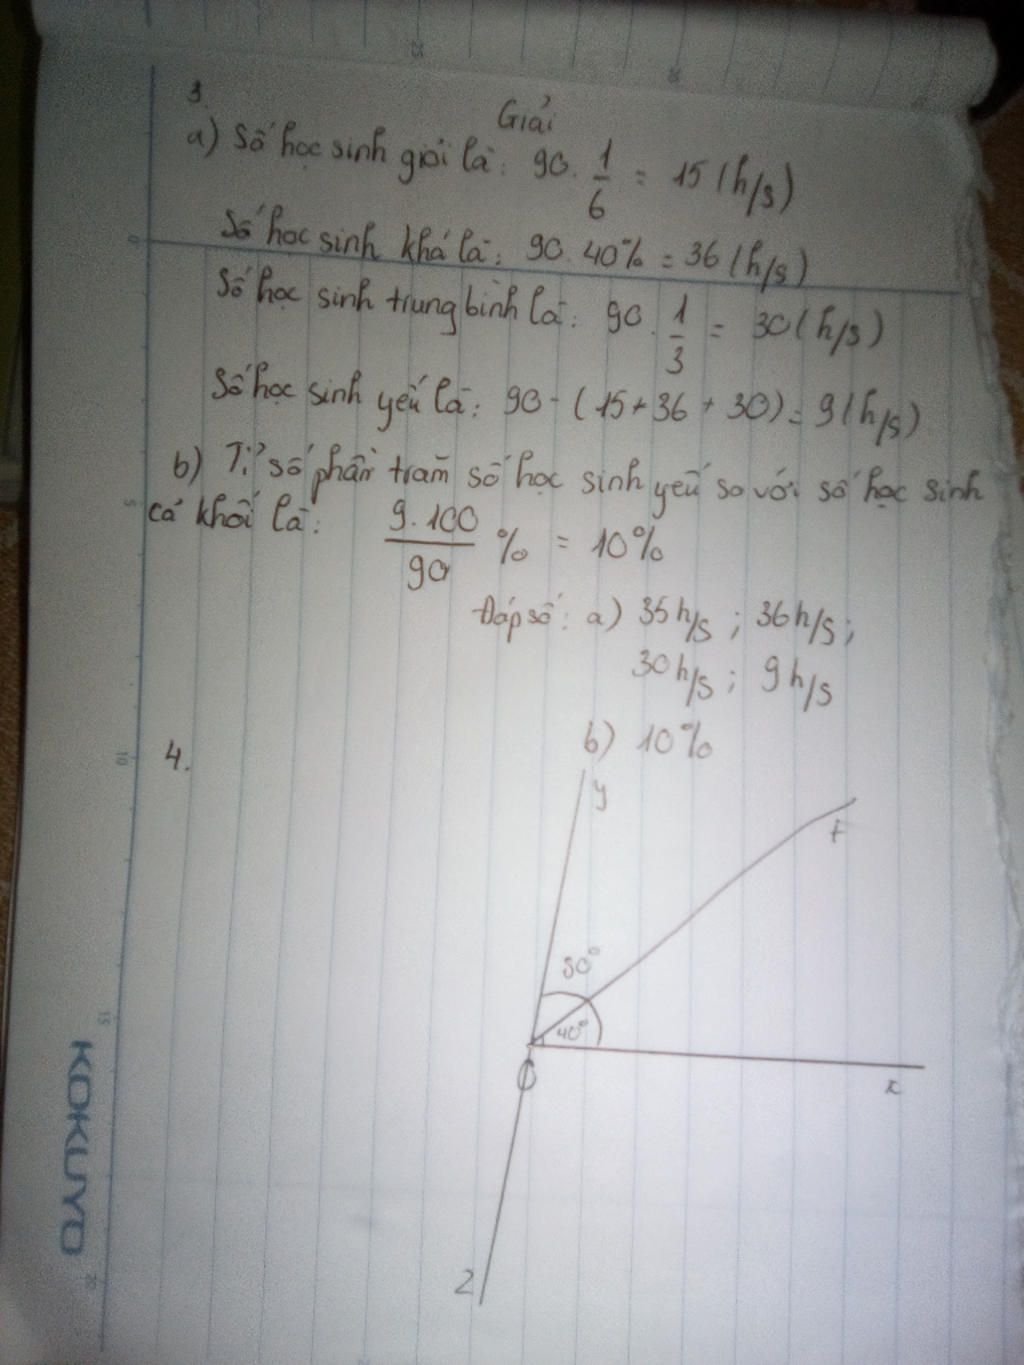 3.
Giải
a) Số học sinh giỏi là: 90 . 1/6 = 15 (h/s)
Số học sinh khá là: 90 . 40% = 36 (h/s)
Số học sinh trung bình là: 90 . 1/3 = 30 (h/s)
Số học sinh yếu là: 90 - (15 + 36 + 30) = 9 (h/s)
b) Tỉ số phần trăm số học sinh yếu so với số học sinh
cả khối là: 9.100/90 % = 10%
Đáp số: a) 35 h/s ; 36 h/s ;
30 h/s ; 9 h/s
b) 10%
4.
y
t
80°
40°
O
x
z
KOKUYO
0
5
10
15
20